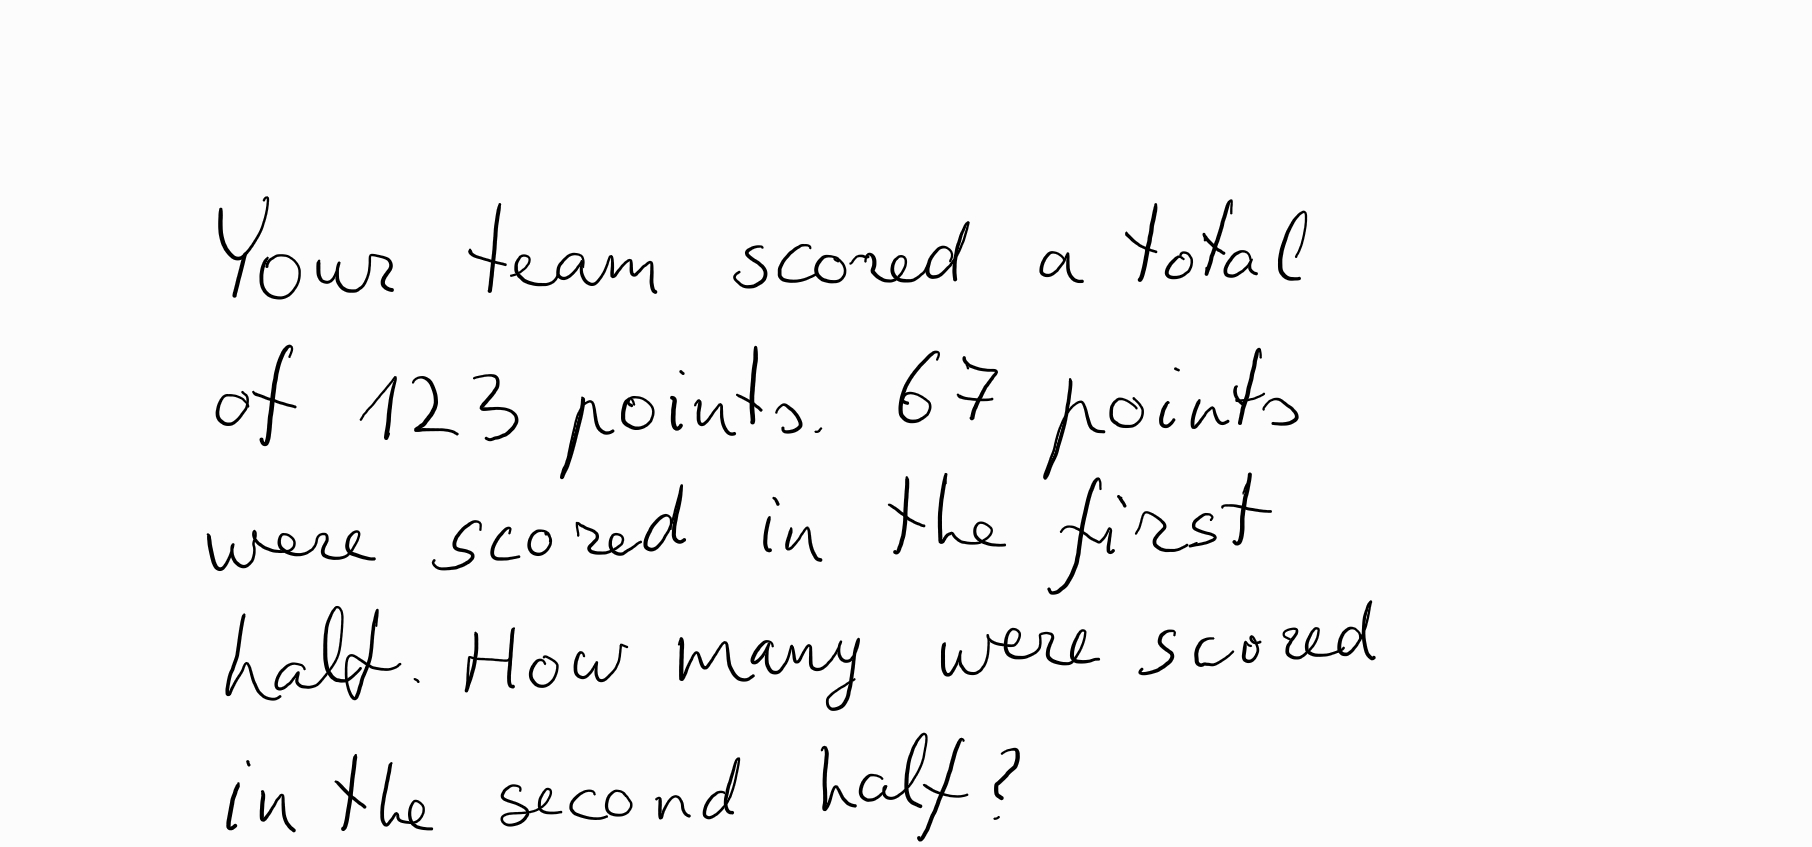 Your team scored a total
of 123 points. 67 points
were scored in the first
half. How many were scored
in the second half?